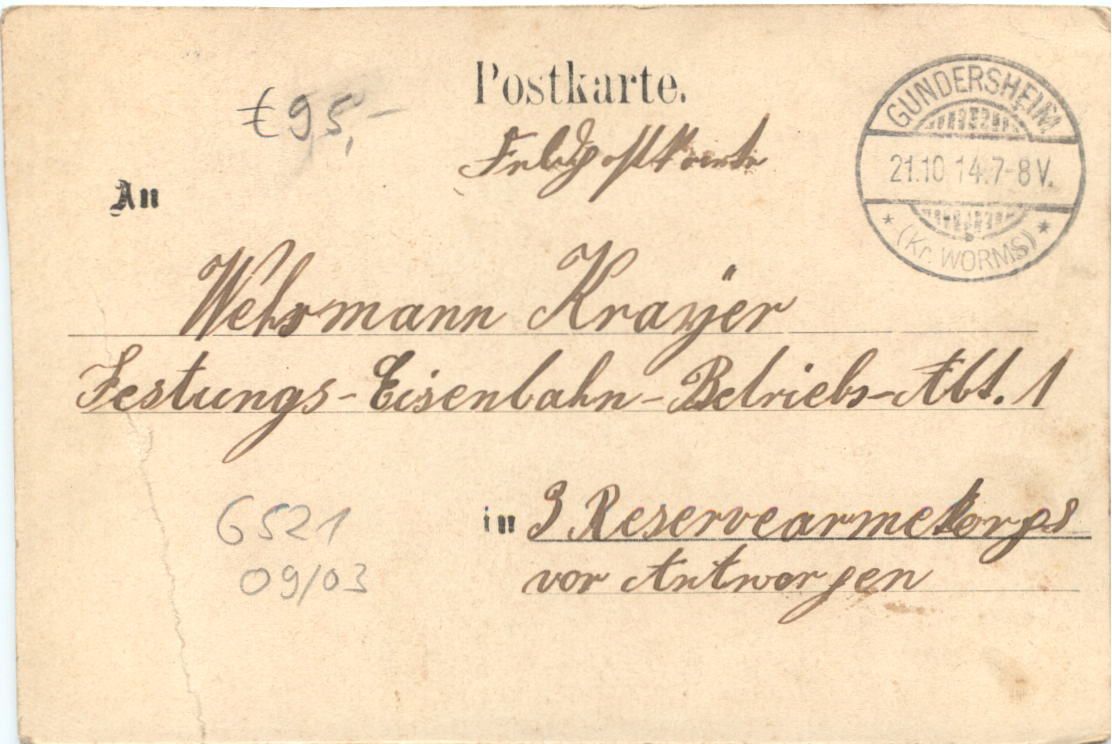 Postkarte.
€ 95,-
Feldpostkarte
GUNDERSHEIM
21.10.14.7-8V.
* (Kr. WORMS) *
An
Wehrmann Krayer
Festungs-Eisenbahn-Betriebs-Abt. 1
6521
09/03
in 3 Reservearmekorps
vor Antwerpen